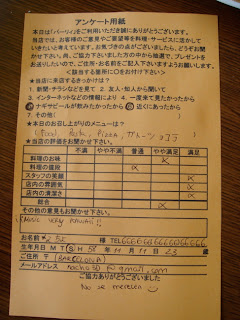 アンケート用紙
本日は「バーリィ」をご利用いただき誠にありがとうございます。
当店では、お客様のご意見やご要望等を料理・サービスに活かして
いきたいと考えています。お気づきの点がございましたら、どうぞお聞か
せ下さい。尚、ご協力下さいました方の中から抽選で、プレゼントを
お送りしたいので、ご住所・お名前をご記入下さいますようお願いします。
<該当する箇所に○をお付け下さい>
★当店に来店するきっかけは?
1.新聞・チラシなどを見て 2.友人・知人から聞いて
3.インターネットなどの情報により 4.一度来て見たかったから
ナギサビールが飲みたかったから 近くにあったから
7.その他(
★本日のお召し上がりのメニューは?
Pizza,
★当店の評価をお聞かせ下さい。
不満 やや不満 普通 やや満足 満足
料理のお味 X
料理の値段 X
スタッフの笑顔 X
店内の雰囲気 X
店内の清潔さ X
総合 X
その他の意見もお聞かせ下さい。
Music very
お名前 様 TEL
生年月日 M T S H 58年 11月 11日 23歳
ご住所 〒 BARCELONA
メールアドレス nacho3D@gmail.com
ご協力ありがとうございました
No se merecen